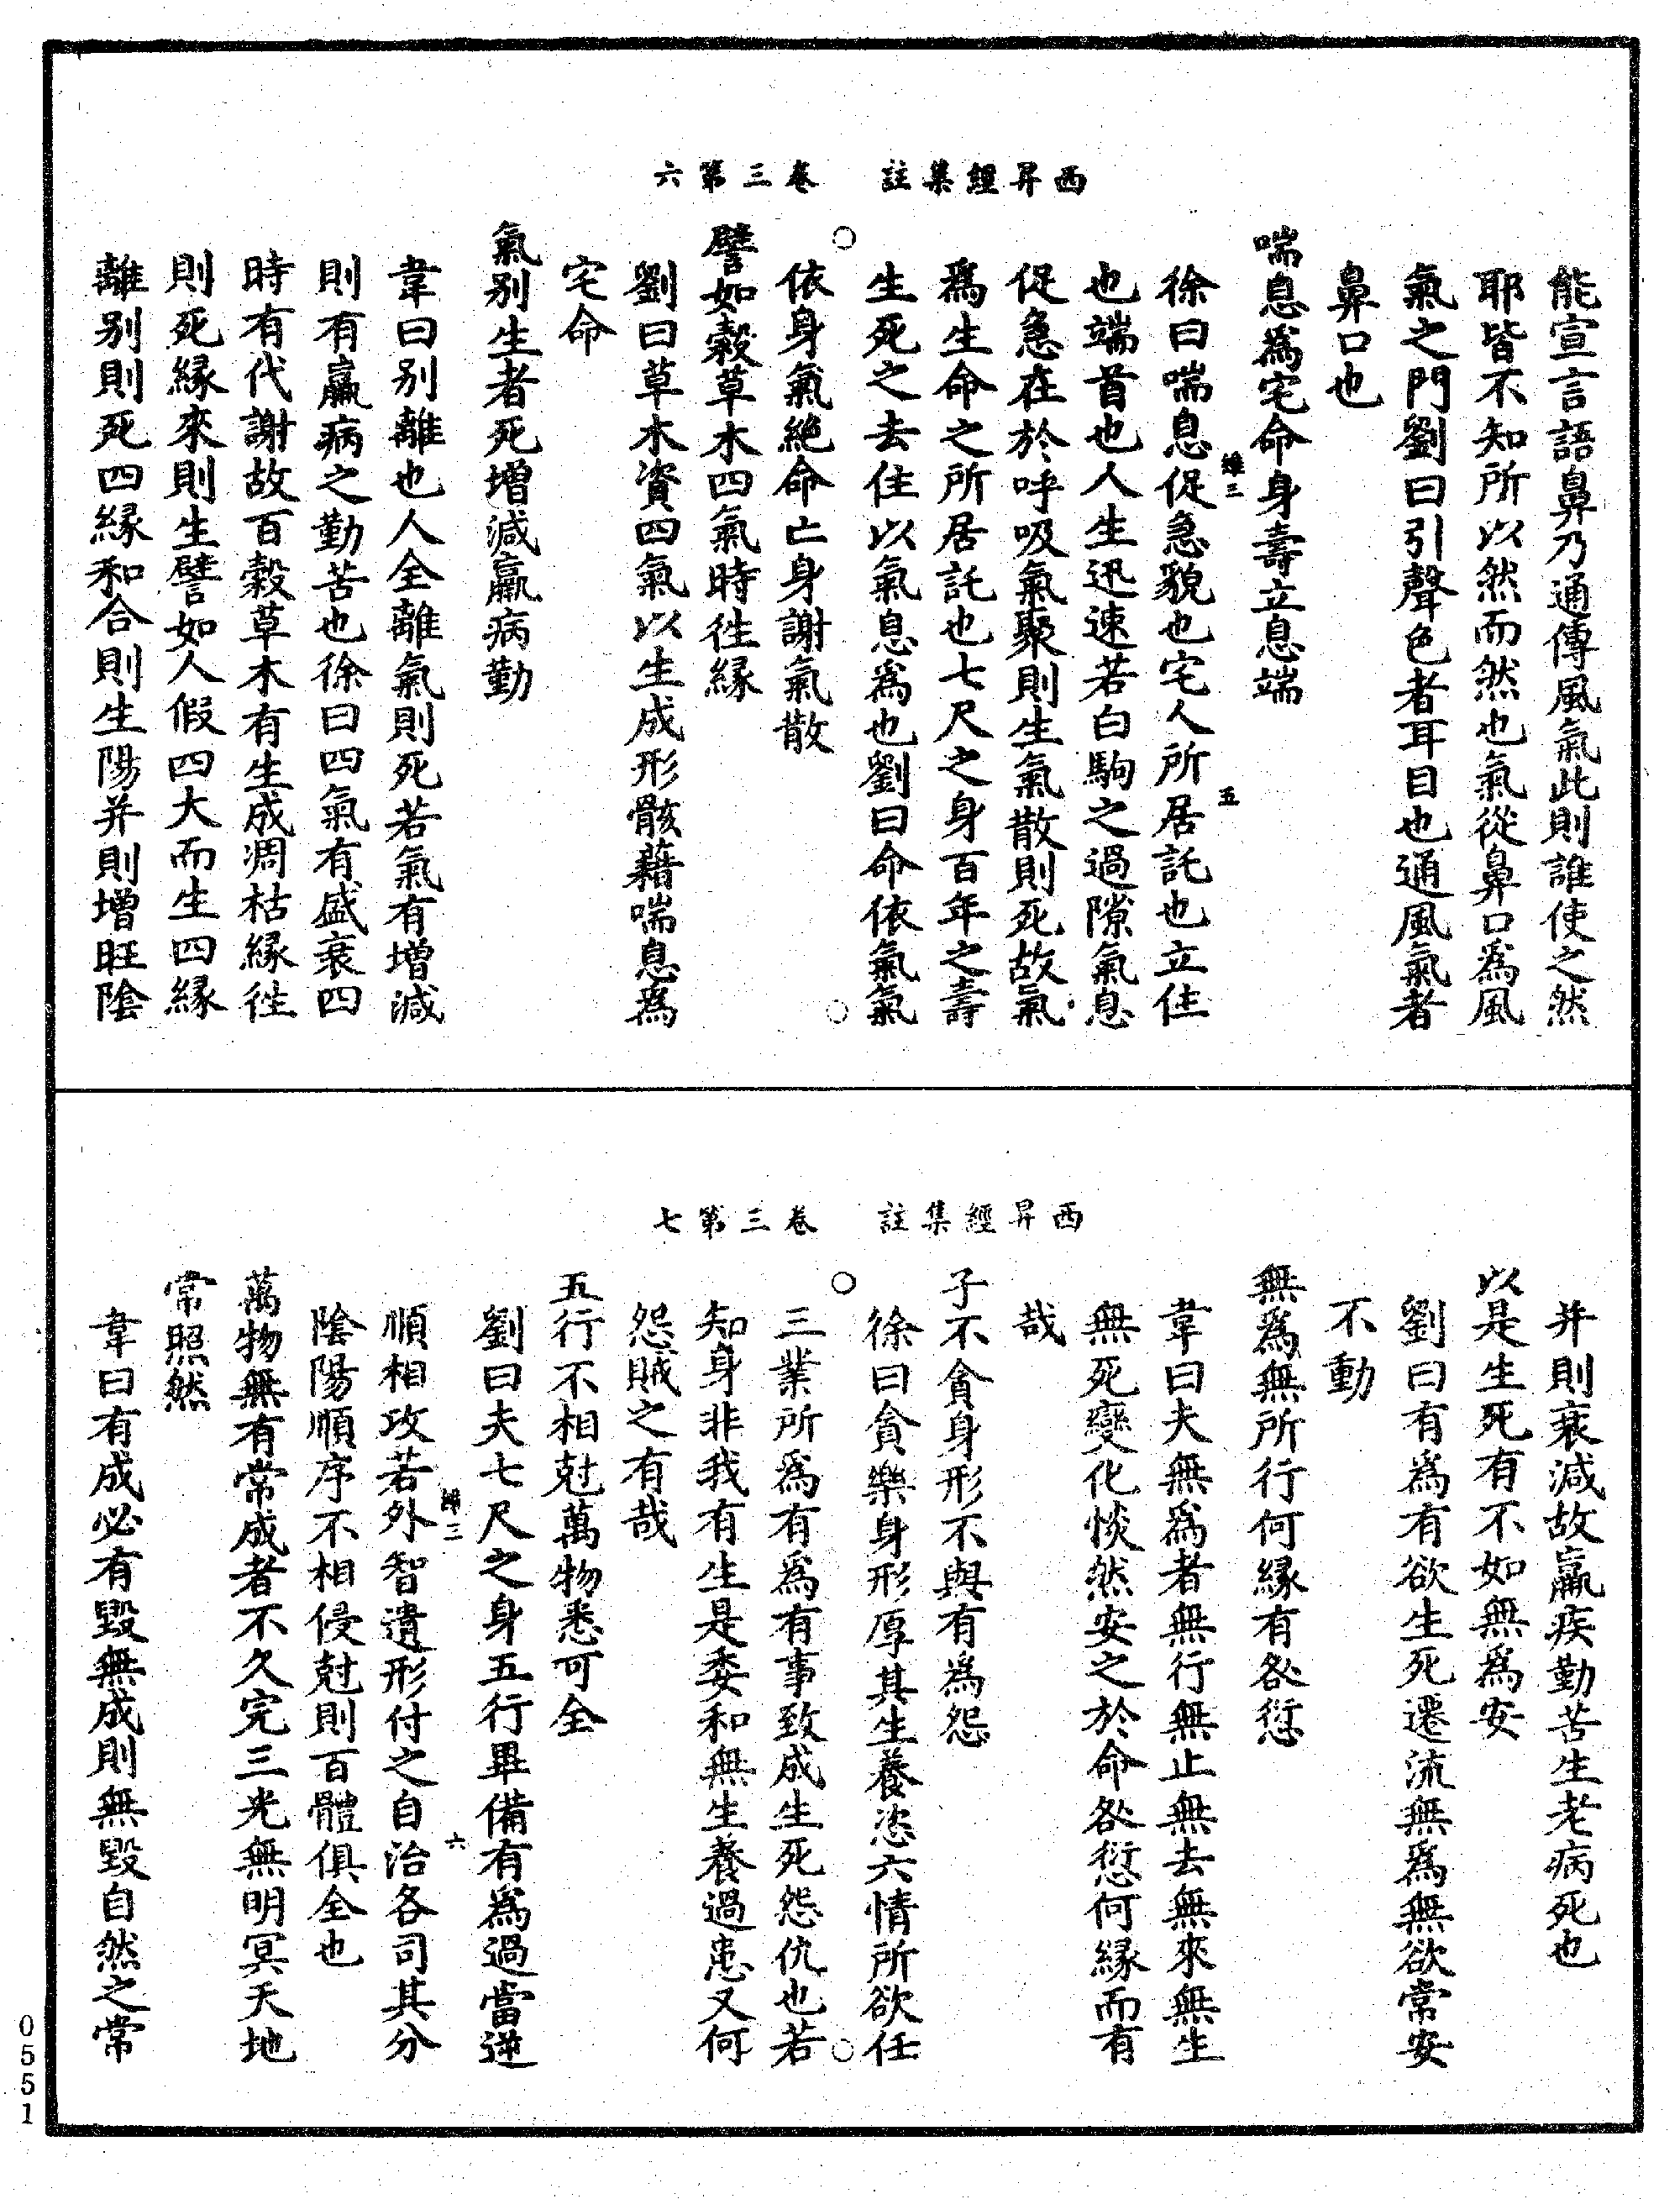 西昇經集註 卷三第六
能宣言語鼻乃通傳風氣此則誰使之然
耶皆不知所以然而然也氣從鼻口為風
氣之門劉曰引聲色者耳目也通風氣者
鼻口也
喘息為宅命身壽立息端
徐曰喘息促急貌也宅人所居託也立住
也端首也人生迅速若白駒之過隙氣息
促急在於呼吸氣聚則生氣散則死故氣
為生命之所居託也七尺之身百年之壽
生死之去住以氣息為也劉曰命依氣氣
依身氣絶命亡身謝氣散
譬如穀草木四氣時徃縁
劉曰草木資四氣以生成形骸藉喘息為
宅命
氣别生者死增減羸病勤
韋曰别離也人全離氣則死若氣有增減
則有羸病之勤苦也徐曰四氣有盛衰四
時有代謝故百穀草木有生成凋枯縁徃
則死縁來則生譬如人假四大而生四縁
離别則死四縁和合則生陽并則增旺陰
維三
五
西昇經集註 卷三第七
并則衰減故羸疾勤苦生老病死也
以是生死有不如無為安
劉曰有為有欲生死遷流無為無欲常安
不動
無為無所行何縁有咎愆
韋曰夫無為者無行無止無去無來無生
無死變化惔然安之於命咎愆何縁而有
哉
子不貪身形不與有為怨
徐曰貪樂身形厚其生養恣六情所欲任
三業所為有為有事致成生死怨仇也若
知身非我有生是委和無生養過患又何
怨賊之有哉
五行不相尅萬物悉可全
劉曰夫七尺之身五行畢備有為過當逆
順相攻若外智遺形付之自治各司其分
陰陽順序不相侵尅則百體俱全也
萬物無有常成者不久完三光無明冥天地
常照然
韋曰有成必有毀無成則無毀自然之常
維三
六
0551